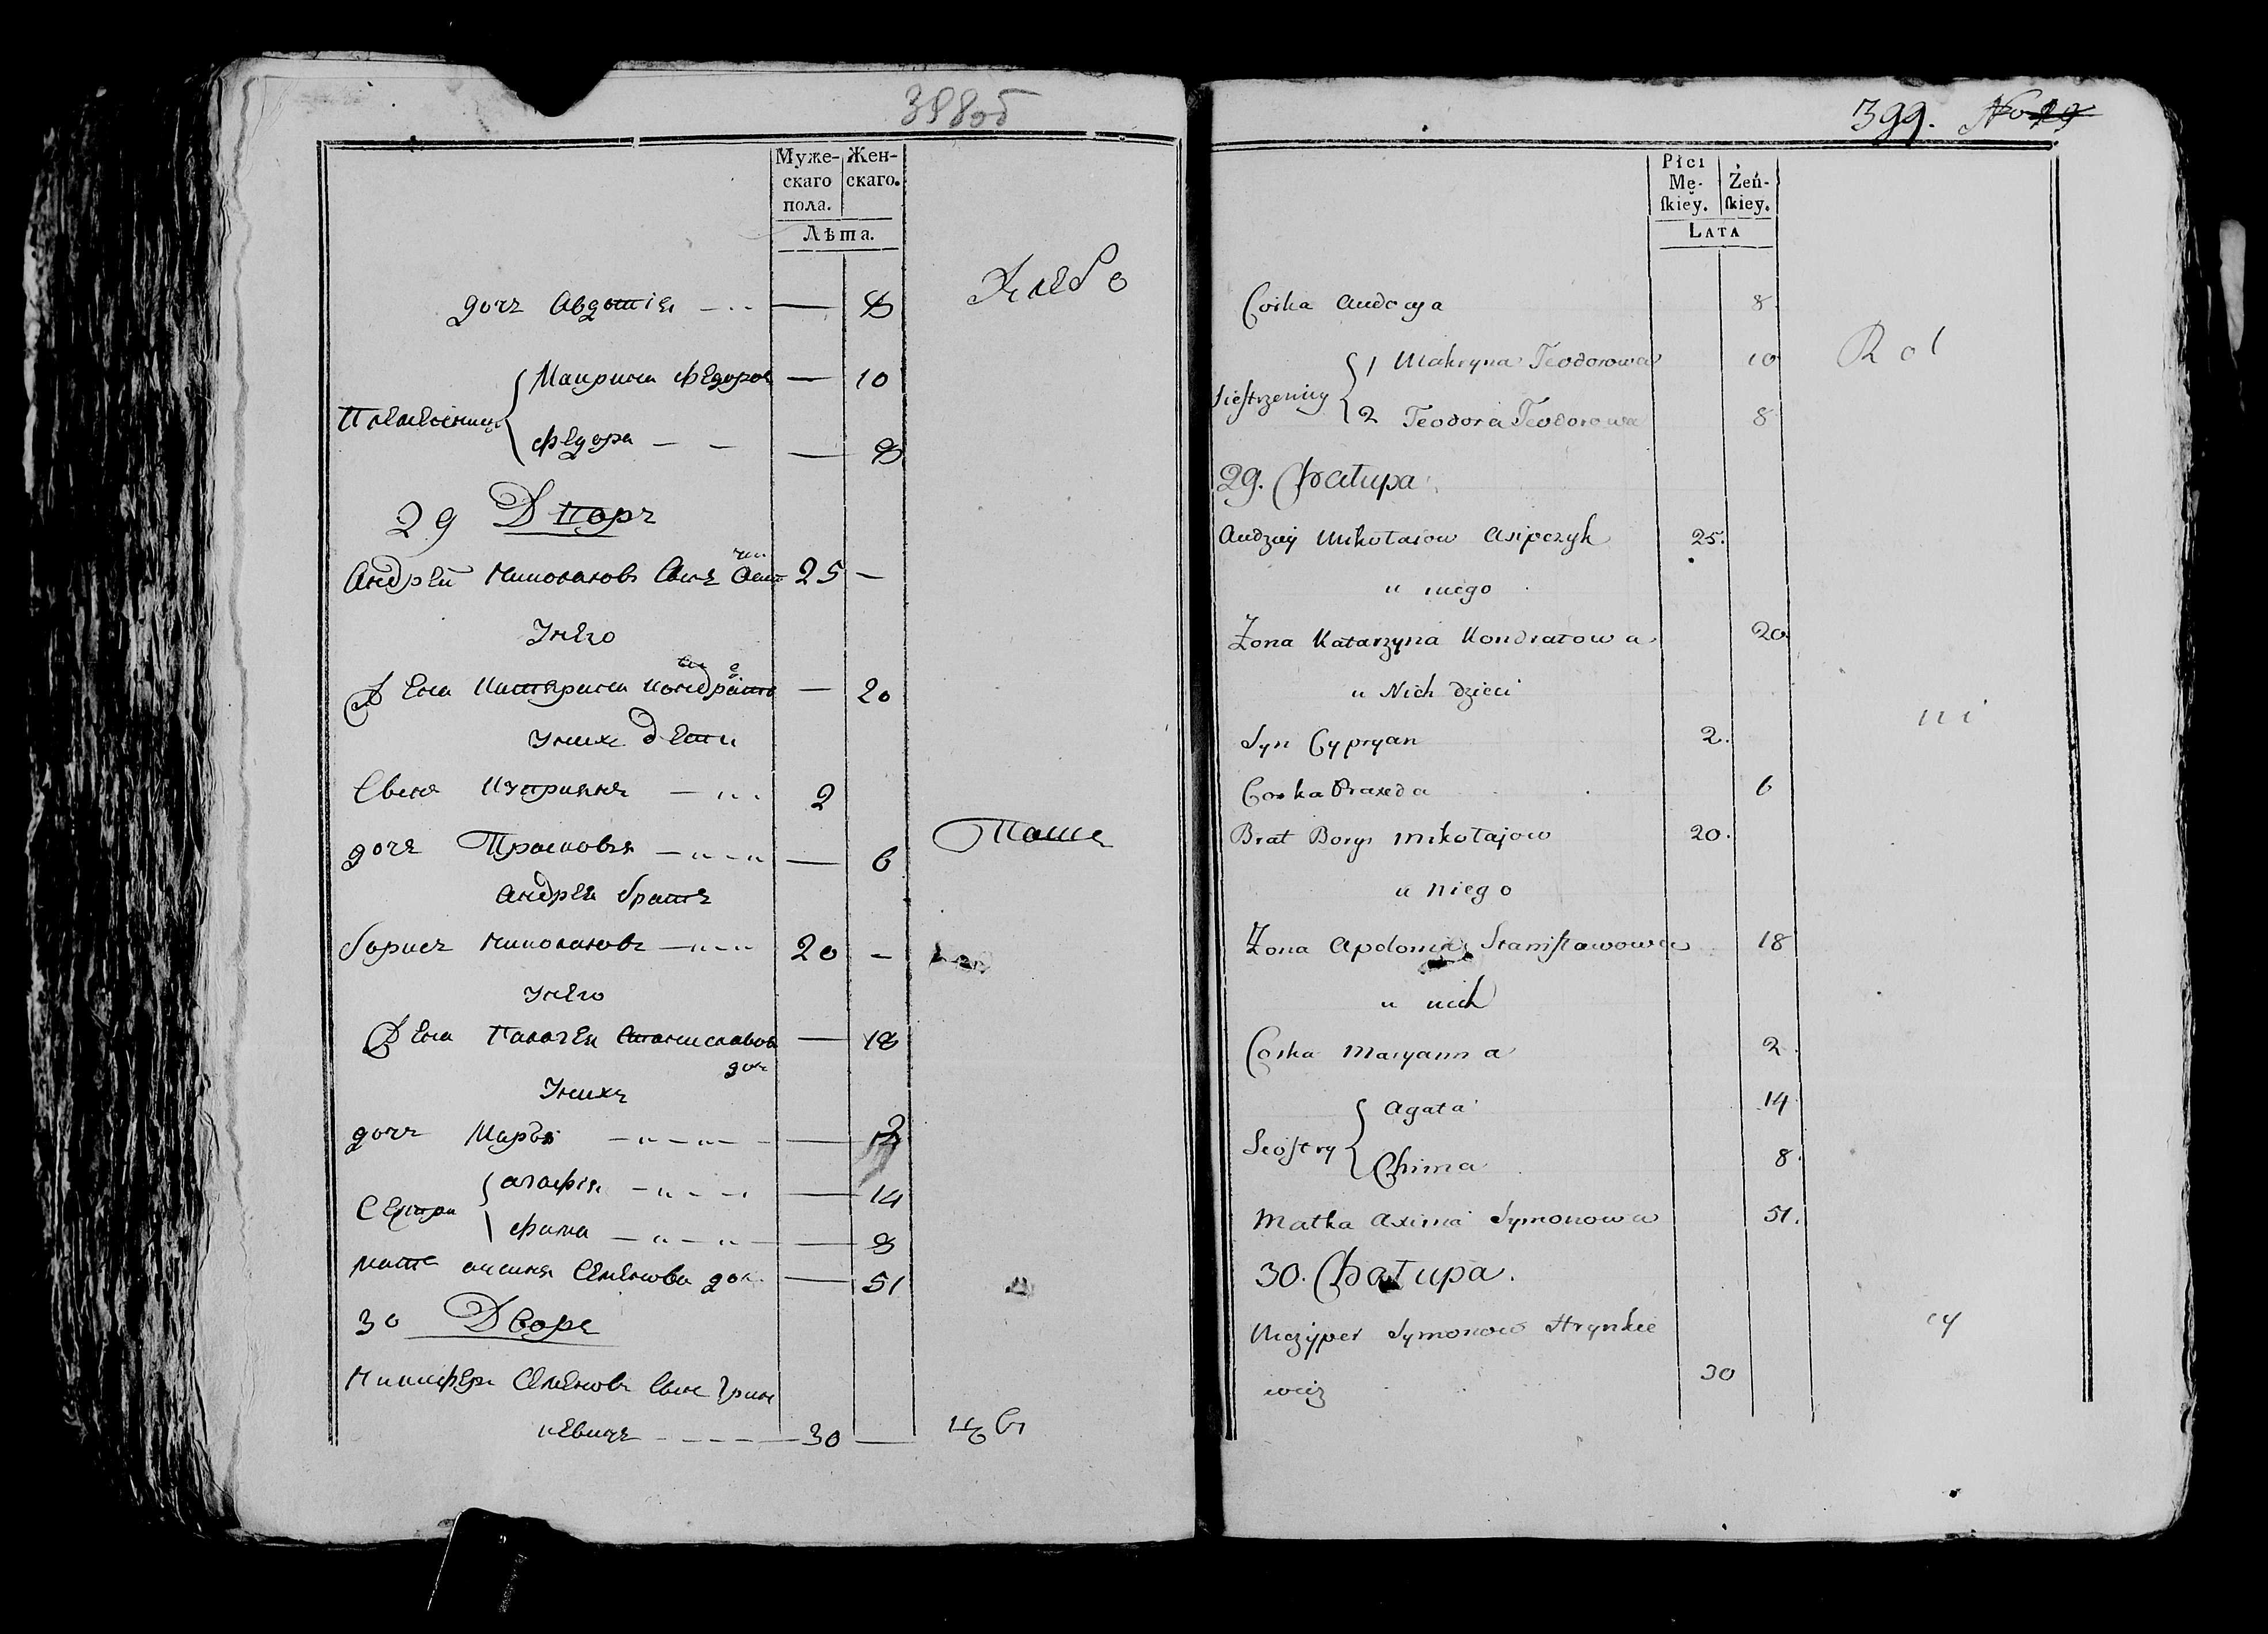 388об
Муже- Жен-
скаго скаго.
пола.
Лѣта.
Хлебо
дочь Авдотія — 8
Племѣницы Маврина Федоров — 10
Федора — — — 8
29 Дворъ
Андрей Николаовъ Сынъ 25 —
Унего
Жена Катерина Кондрато — 20
Унихъ дети
Сынъ Куприянъ — 2
дочь Просковья — 6
Паше
Андрея братъ
Борисъ Николаовъ — 20 —
Унего
Жена Палагея Станиславов — 18
доч
Унихъ
дочь Марья — 2
Сестри Агафія — 14
Фима — 8
мать Аксиня Семенова доч. — 51
30 Дворъ
Никиферъ Семеновъ Сынъ Грин
кевичъ — — — 30 —
цы
399. No 29
Płci
Mę- Żeń-
ſkiey. ſkiey.
LATA
Corka Audocya 8
Rol
Siestrzenicy 1 Makryna Teodorowa 10
2 Teodora Teodorowa 8
29. Chałupa
Andzey Mikołaiow Asipczyk 25.
u niego
Żona Katarzyna Kondratowa 20.
u Nich dzieci
ni
Syn Cypryan 2.
Corka Praxeda 6
Brat Borys Mikołajow 20.
u niego
Żona Apolonia Stanisławowa 18
u nich
Corka Maryanna 2.
Siostry Agata 14
Chima 8.
Matka Axinia Symonowa 51.
30. Chałupa.
Niczyper Symonow Hrynkie
cy
wicz 30